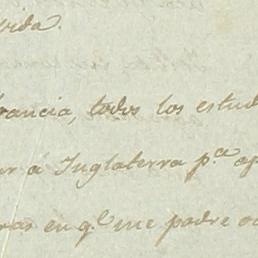 vida.
francia, todos los estud
ar á Inglaterra p.ª ap
ras en q.e me padre oc